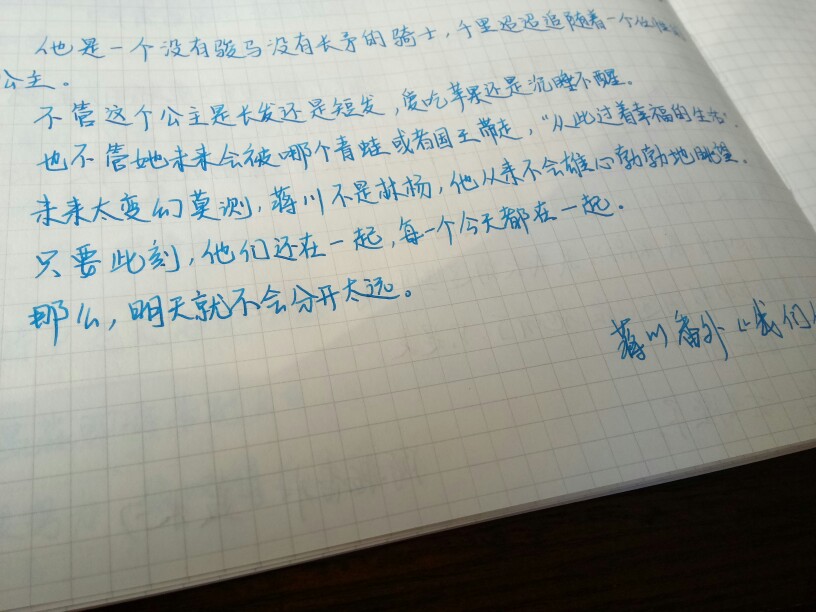 他是一个没有骏马没有长矛的骑士，千里迢迢追随着一个任性
公主。
不管这个公主是长发还是短发，爱吃苹果还是沉睡不醒。
也不管她未来会被哪个青蛙或者国王带走，“从此过着幸福的生活”。
未来太变幻莫测，蒋川不是林杨，他从来不会雄心勃勃地眺望。
只要此刻，他们还在一起，每一个今天都在一起。
那么，明天就不会分开太远。
蒋川番外《我们